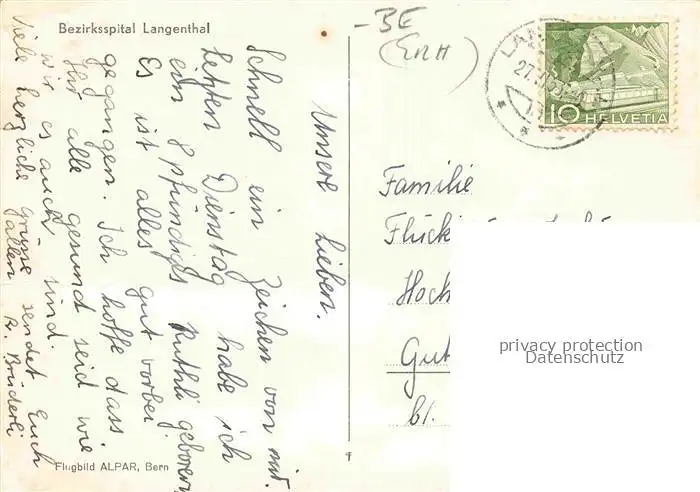 Bezirksspital Langenthal
-BE
(ERH)
HELVETIA
10
Unsere Lieben.
Schnell ein Zeichen von mir.
Letzten Dienstag habe ich
ein 8 pfündiges Ruthli geboren
Es ist alles gut vorbei
gegangen. Ich hoffe dass
Ihr alle gesund seid wie
wir es auch sind.
Viele herzliche Grüsse sendet Euch
allen
Familie
Flücki
Hoch
Gut
bl.
privacy protection
Datenschutz
Flugbild ALPAR, Bern